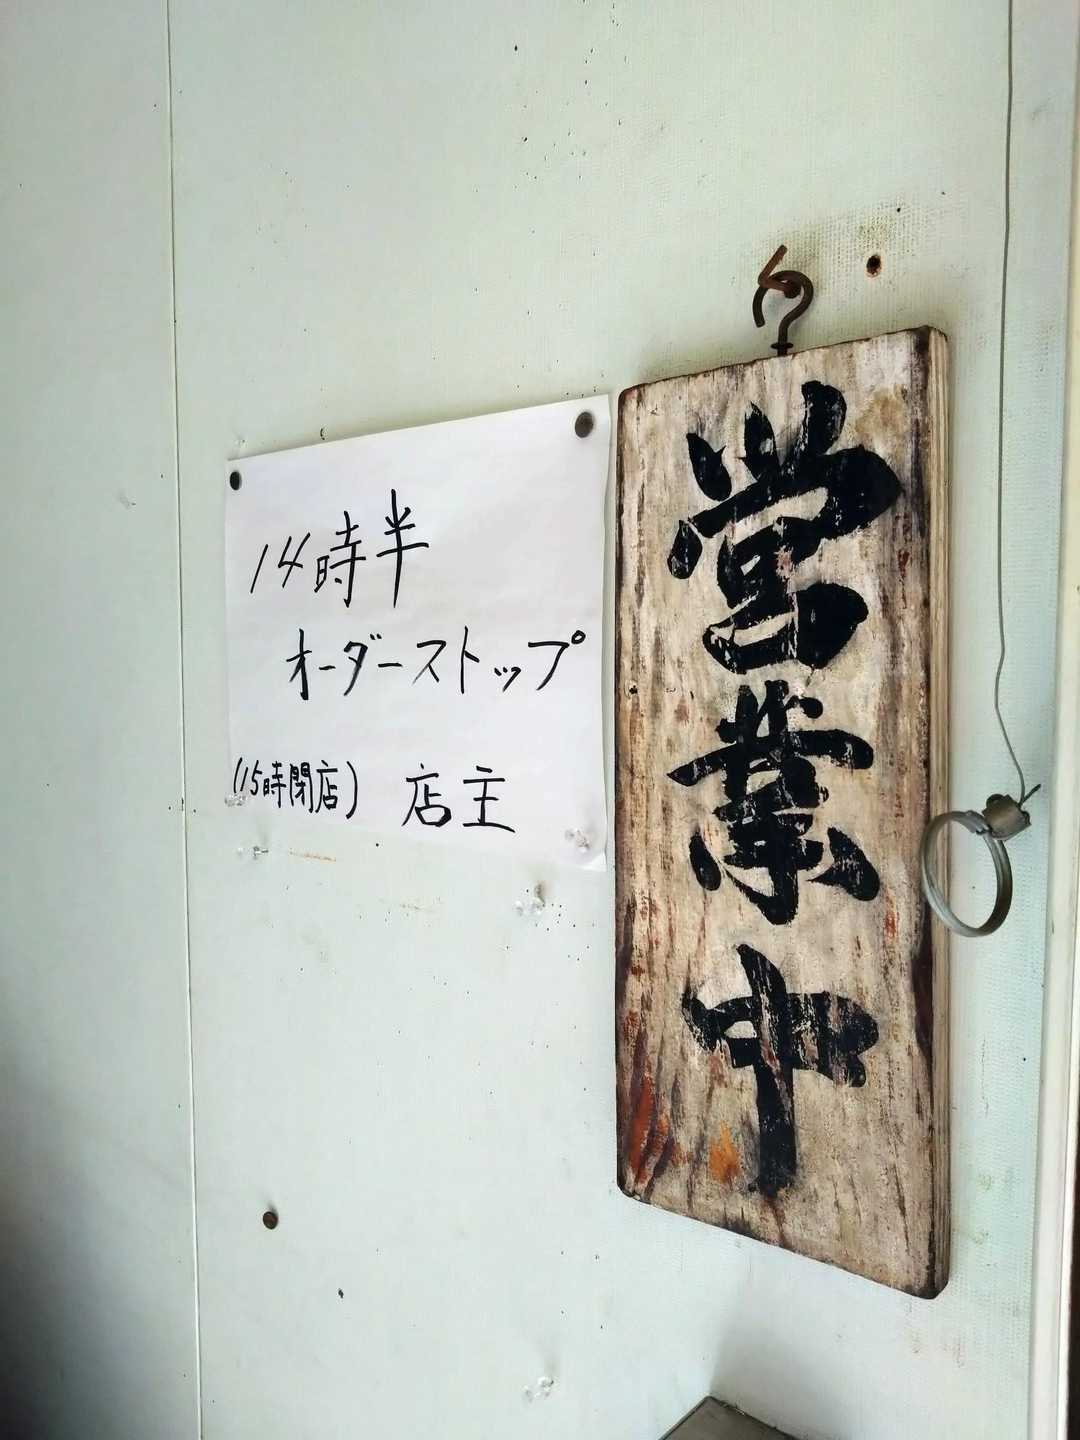 14時半
オーダーストップ
(15時閉店) 店主
営業中